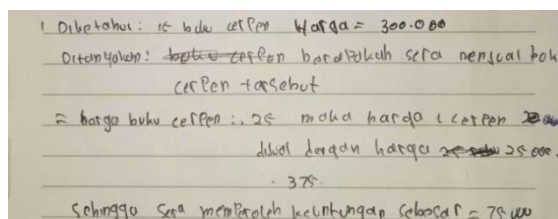 1 Diketahui: 15 buku cerpen Harga = 300.000
Ditanyakan: buku cerpen berapakah sera menjual buk
cerpen tersebut
= harga buku cerpen : 25 maka harga 1 cerpen
dijual dengan harga 25.000.
. 375
Sehingga sera memperoleh keuntungan sebesar = 75.000